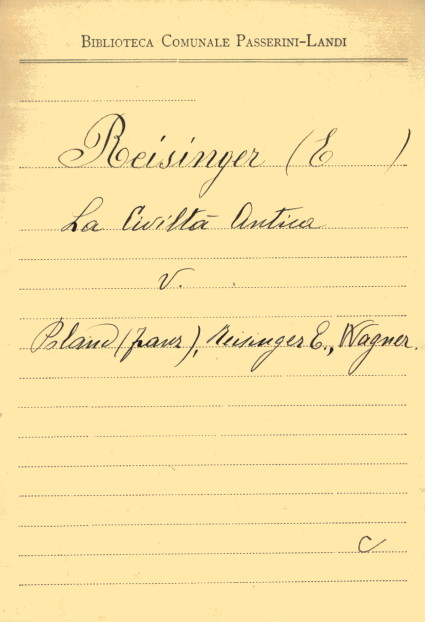 BIBLIOTECA COMUNALE PASSERINI-LANDI
Reisinger (E )
La Civiltà Antica
V.
(Franz), Reisinger E., Wagner.
C